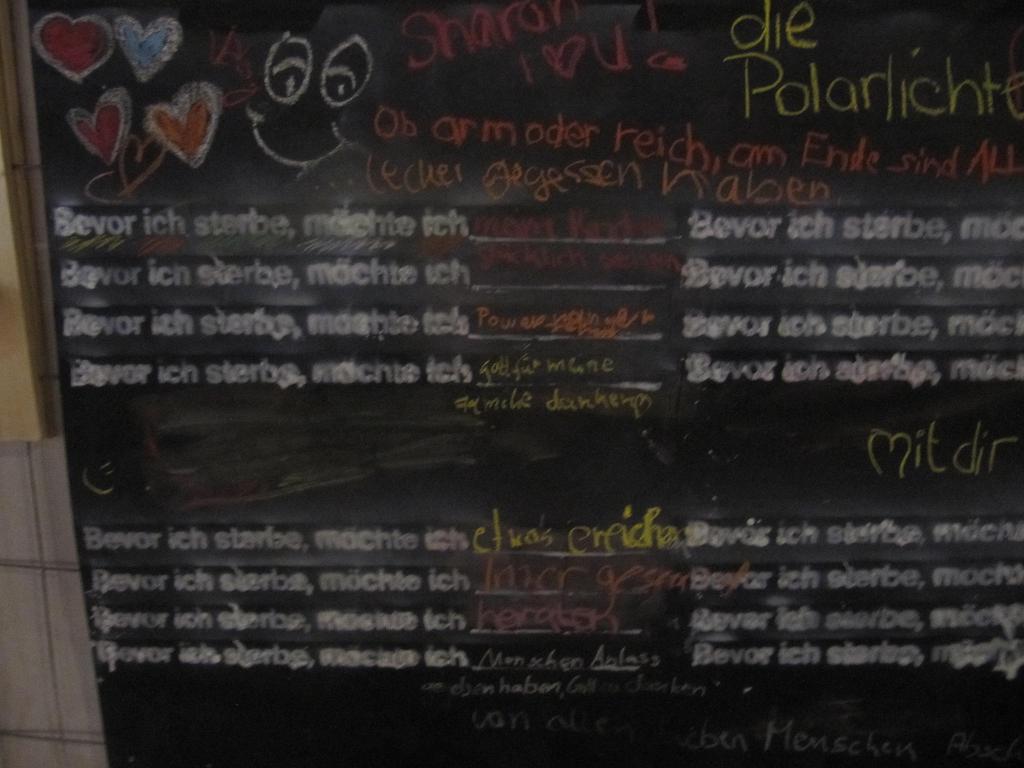 Sharon
I ♥ U
die
Polarlichte
Ob arm oder reich, am Ende sind ALL
lecker gegessen haben
Bevor ich sterbe, möchte ich meine Kinder
Bevor ich sterbe, möc
Bevor ich sterbe, möchte ich
Bevor ich sterbe, möc
Bevor ich sterbe, möchte ich Power
Bevor ich sterbe, möc
Bevor ich sterbe, möchte ich gott für meine
Bevor ich sterbe, möc
danken
Mit dir
Bevor ich sterbe, möchte ich etwas
Bevor ich sterbe, möcht
Bevor ich sterbe, möchte ich
Bevor ich sterbe, möcht
Bevor ich sterbe, möchte ich
Bevor ich sterbe, möch
Bevor ich sterbe, möchte ich Menschen Anlass
Bevor ich sterbe, m
haben, danken
von allen lieben Menschen Absch